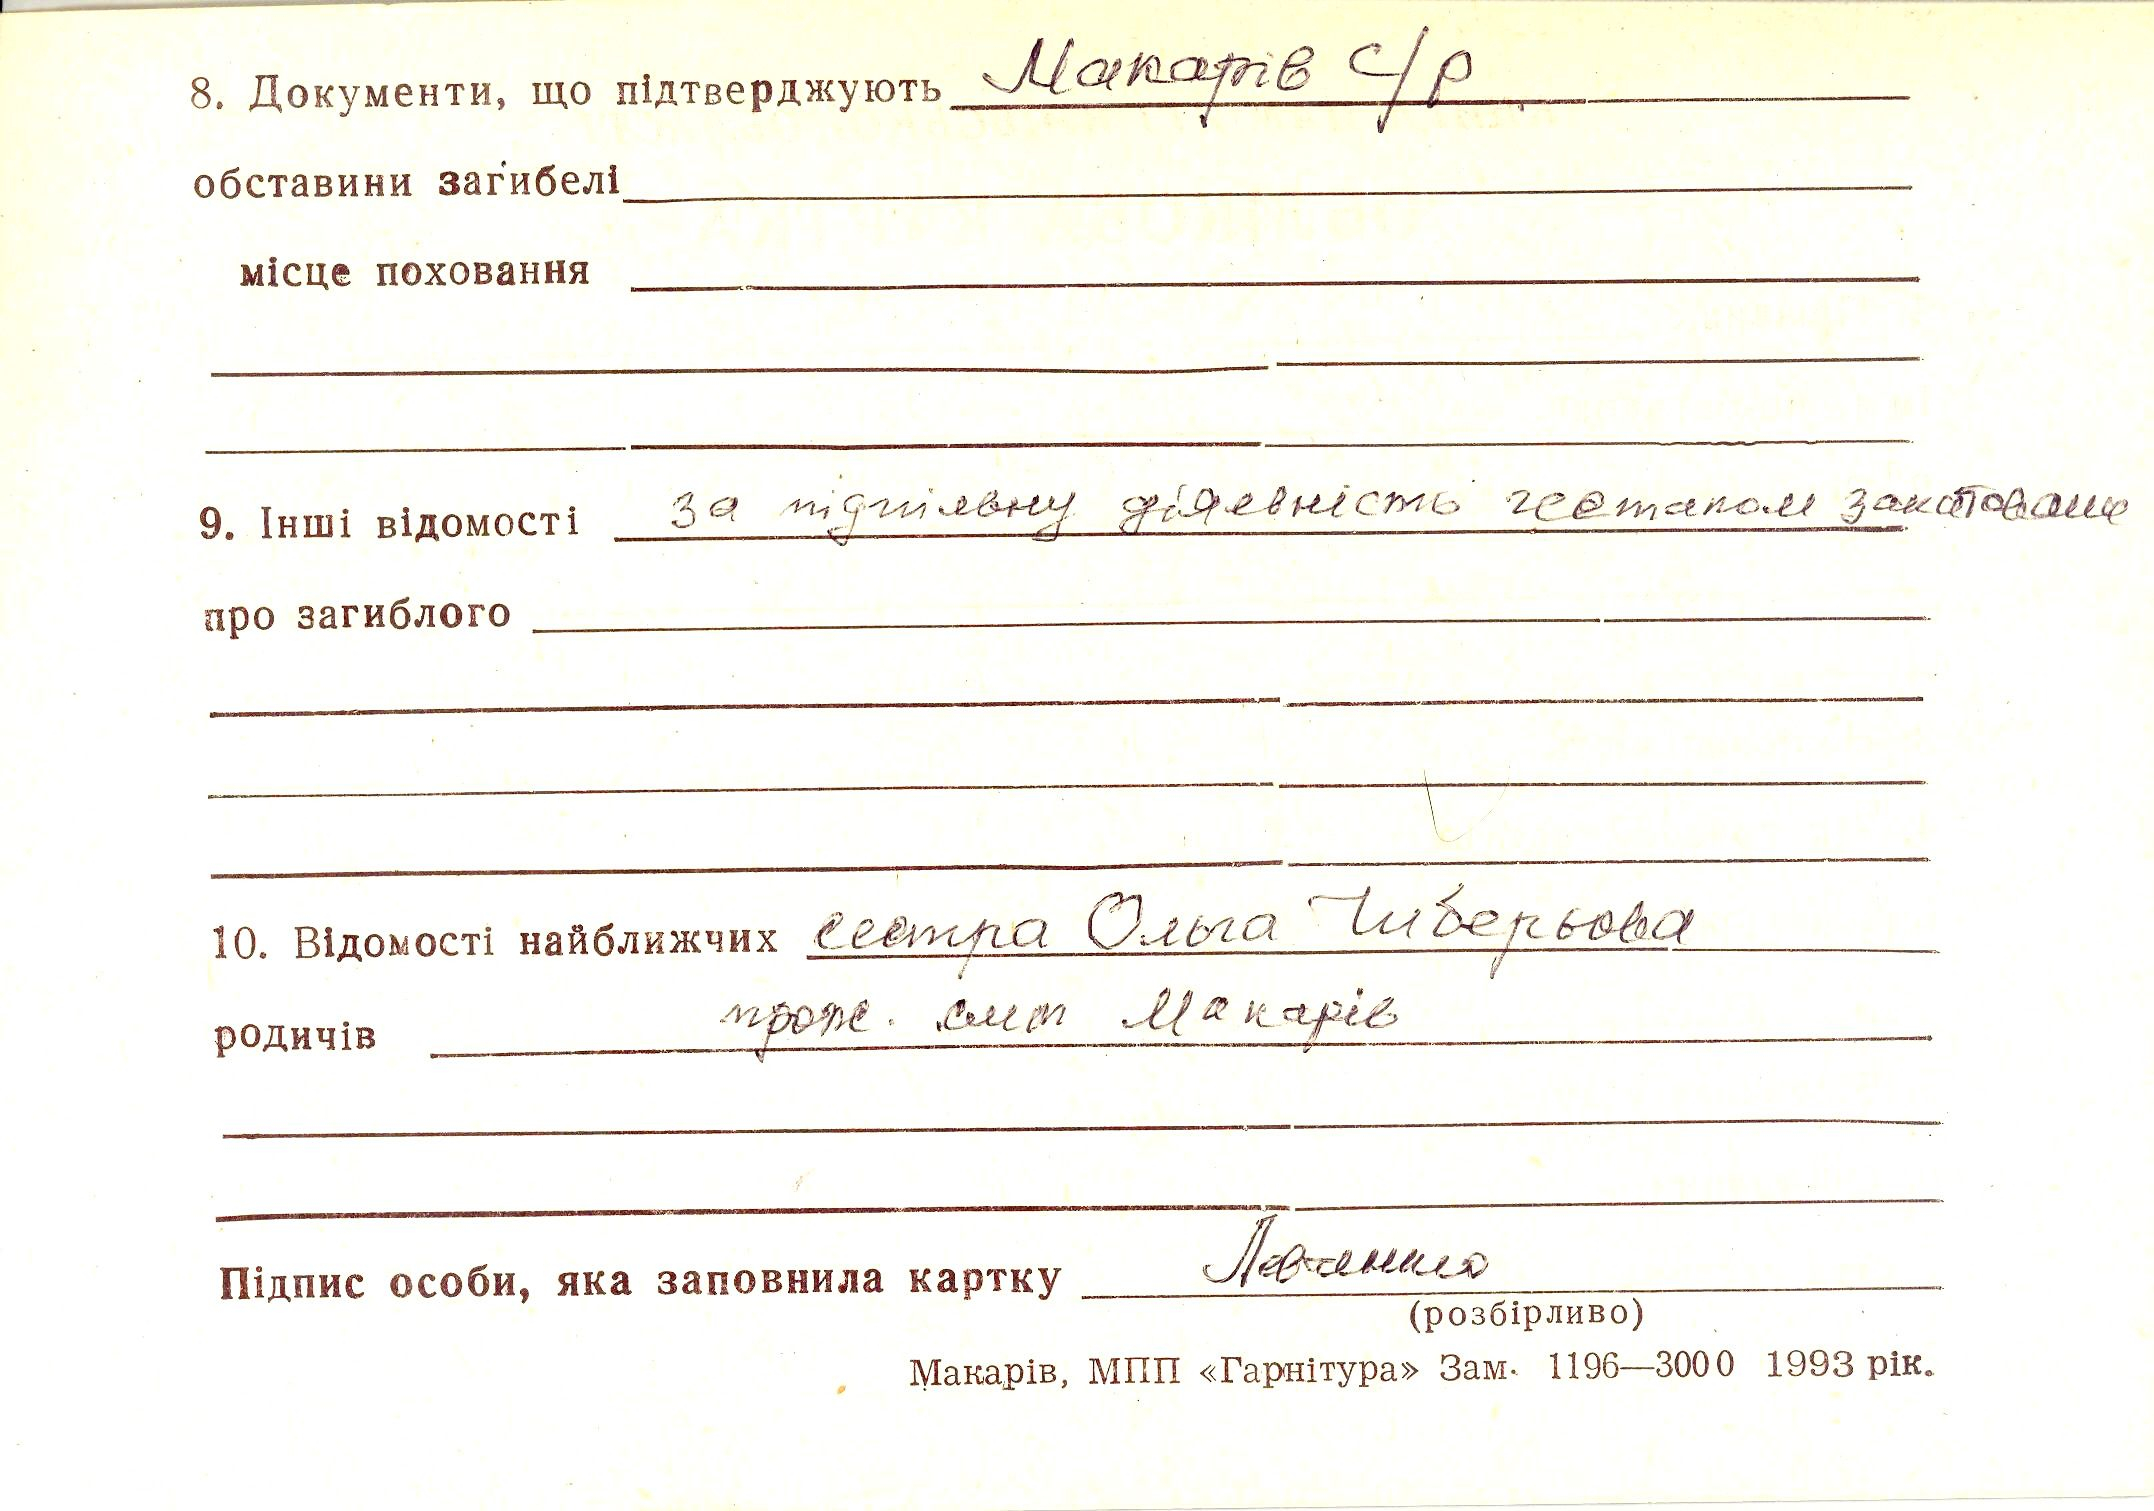 8. Документи, що підтверджують Макарів с/р
обставини загибелі
місце поховання
9. Інші відомості за підпільну діяльність гестапом закатована
про загиблого
10. Відомості найближчих сестра Ольга Чиберьова
родичів прож. смт Макарів
Підпис особи, яка заповнила картку
(розбірливо)
Макарів, МПП «Гарнітура» Зам. 1196—3000 1993 рік.